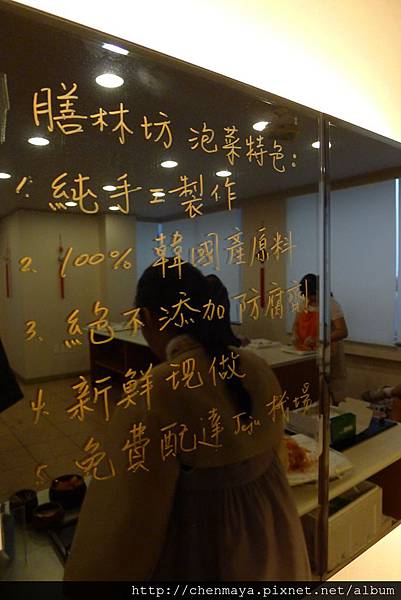 膳林坊 泡菜特色:
1. 純手工製作
2. 100% 韓國產原料
3. 絕不添加防腐劑
4. 新鮮現做
5. 免費配達 Jeju 機場
http://chenmaya.pixnet.net/album